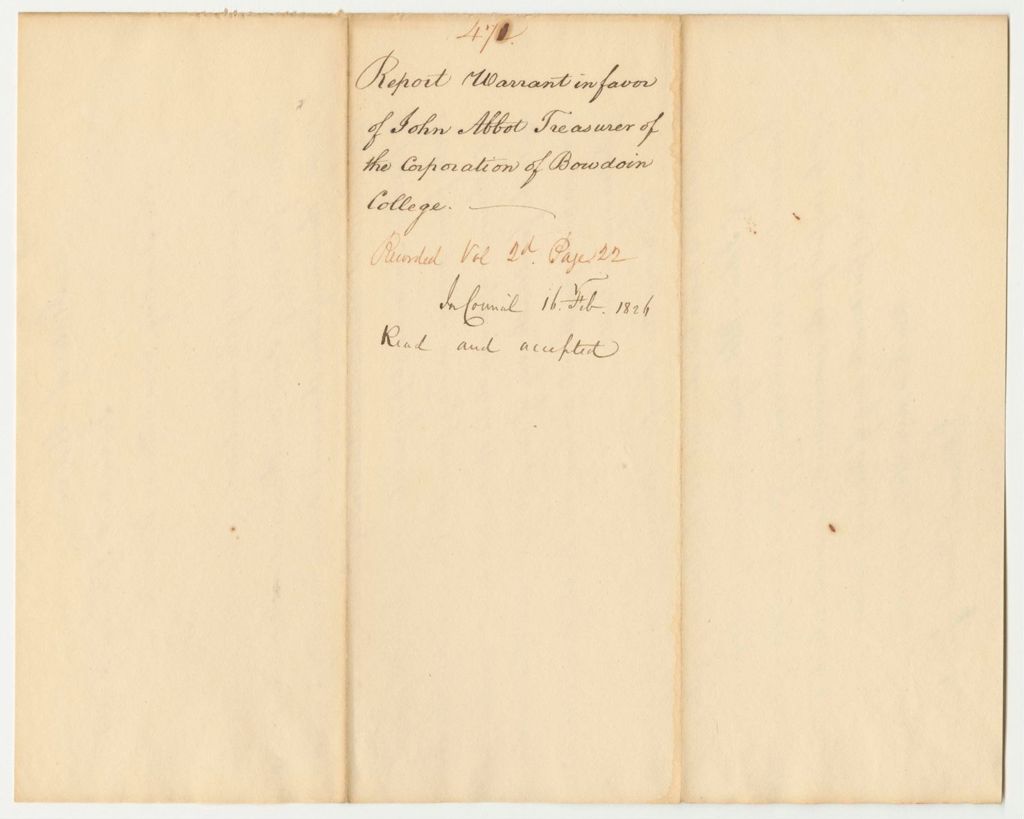 47
Report Warrant in favor
of John Abbot Treasurer of
the Corporation of Bowdoin
College.
Recorded Vol 2d. Page 22
In Council 16. Feb. 1826
Read and accepted